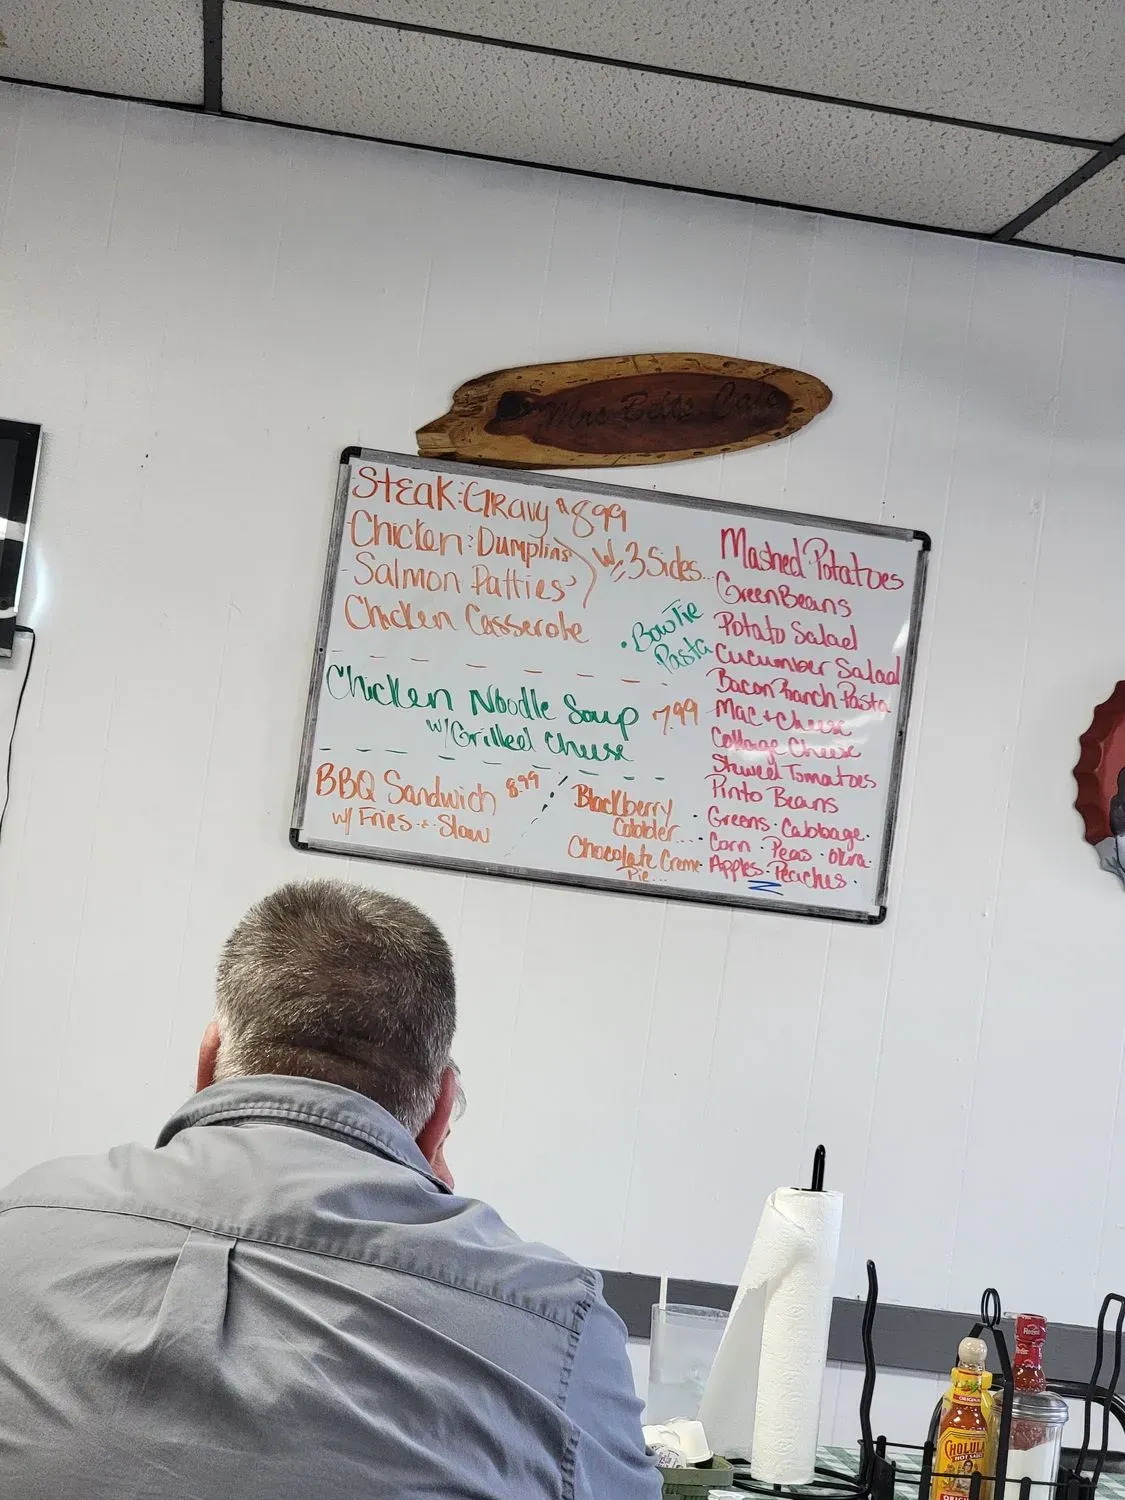 Mrs Betts Cafe
Steak & Gravy $8.99
Chicken & Dumplins
Salmon Patties
W/ 3 Sides...
Chicken Casserole
• Bow Tie
Pasta
Chicken Noodle Soup 7.99
w/ Grilled Cheese
BBQ Sandwich 8.99
w/ Fries & Slaw
Blackberry
Cobbler...
Chocolate Creme
Pie...
Mashed Potatoes
Green Beans
Potato Salad
Cucumber Salad
Bacon Ranch Pasta
Mac + Cheese
Cottage Cheese
Stewed Tomatoes
Pinto Beans
• Greens • Cabbage •
• Corn • Peas • Okra •
Apples • Peaches •
ORIGINAL
CHOLULA
HOT SAUCE